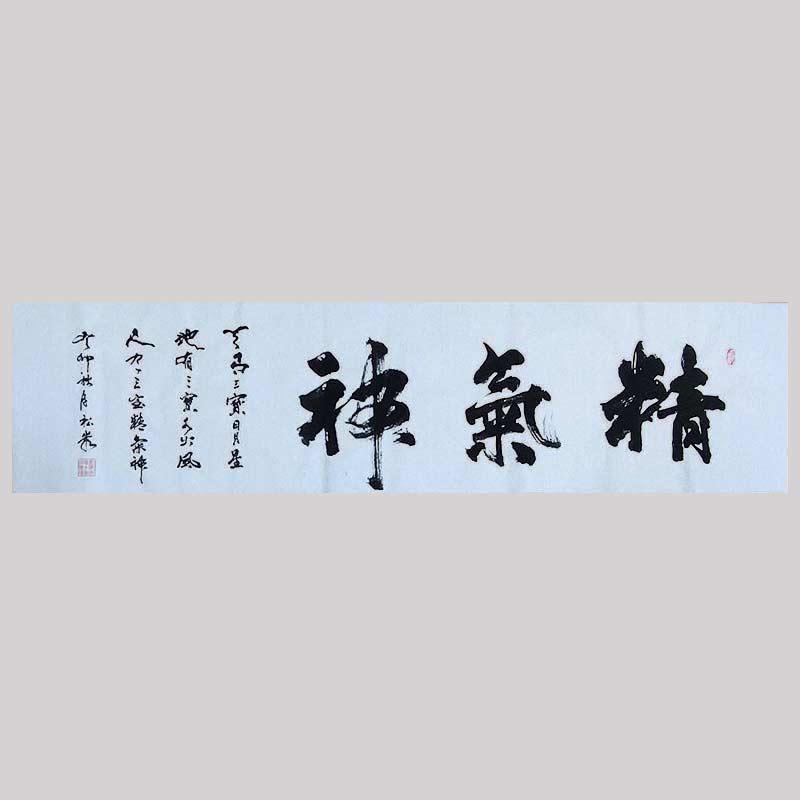 精氣神
天有三寶日月星
地有三寶水火風
人有三宝精氣神
癸卯秋月松岩